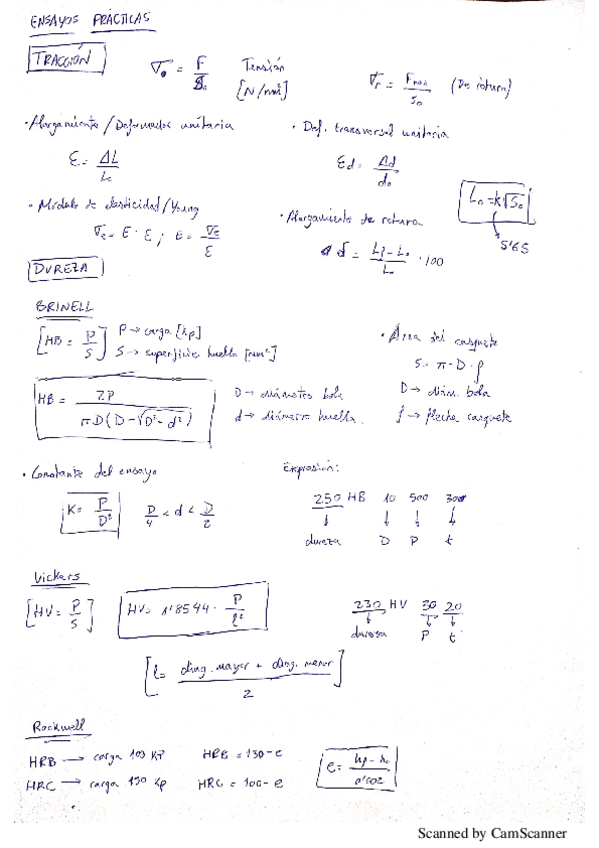 ENSAYOS PRÁCTICAS
TRACCIÓN
σ₀ = F/S₀ Tensión [N/mm²]
σr = Fmax/S₀ (De rotura)
· Alargamiento / Deformación unitaria
ε = ΔL/L₀
· Def. transversal unitaria
εd = Δd/d₀
L₀ = k√S₀
5'65
· Módulo de elasticidad/Young
σe = E · ε ; E = σe/ε
· Alargamiento de rotura
δ = Lf - L₀/L₀ · 100
DUREZA
BRINELL
[HB = P/S] P → carga [kp]
S → superficie huella [mm²]
· Área del casquete
S = π · D · f
HB = 2P/πD(D - √D² - d²)
D → diámetro bola
d → diámetro huella
D → diám. bola
f → flecha casquete
· Constante del ensayo
K = P/D² D/4 < d < D/2
Expresión:
250 HB 10 500 30
dureza D P t
Vickers
[HV = P/S] HV = 1'8544 · P/l²
230 HV 30 20
dureza P t
[l = diag. mayor + diag. menor/2]
Rockwell
HRB → carga 100 KP HRB = 130 - e
HRC → carga 150 Kp HRC = 100 - e
e = hf - h₀/0'002
Scanned by CamScanner